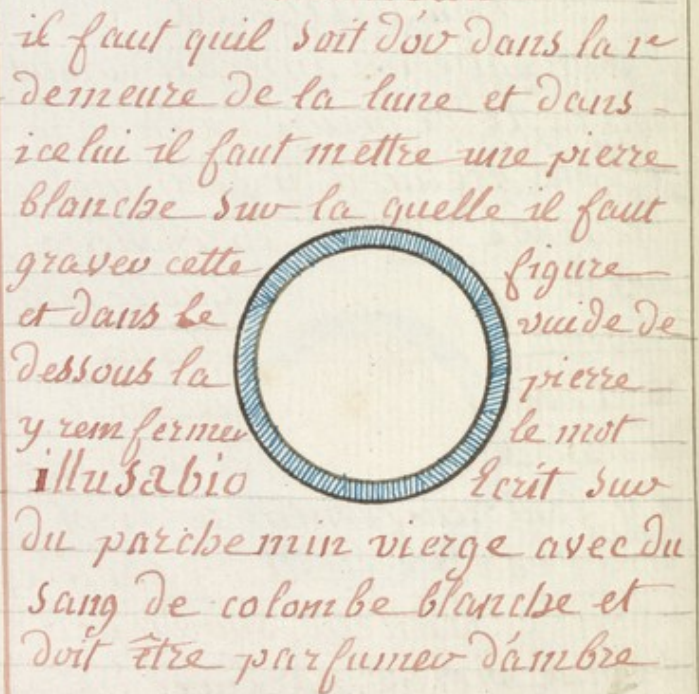 il faut quil soit d'ór dans la 1re
demeure de la lune et dans
icelui il faut mettre une pierre
blanche sur la quelle il faut
graver cette figure
et dans le vuide de
dessous la pierre
y remfermer le mot
illusabio Ecrit sur
du parchemin vierge avec du
sang de colombe blanche et
doit être parfumer d'ambre